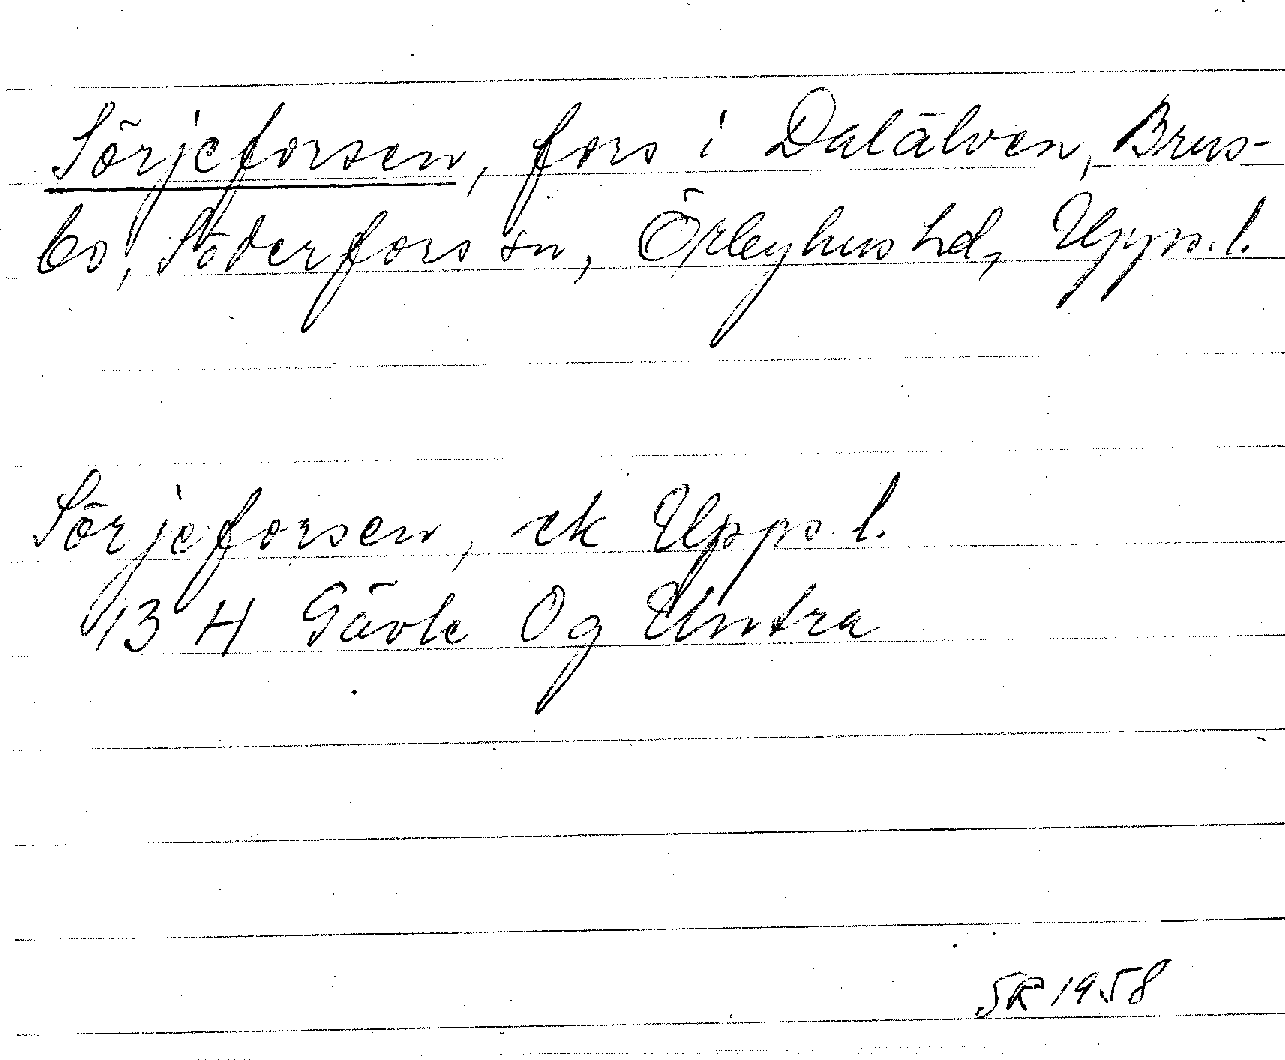 Sörjeforsen, fors i Dalälven, Brus-
bo, Söderfors sn, Örbyhus hd, Upps. l.
Sörjeforsen, ek Upps. l.
13 H Gävle Og Untra
SR 1958